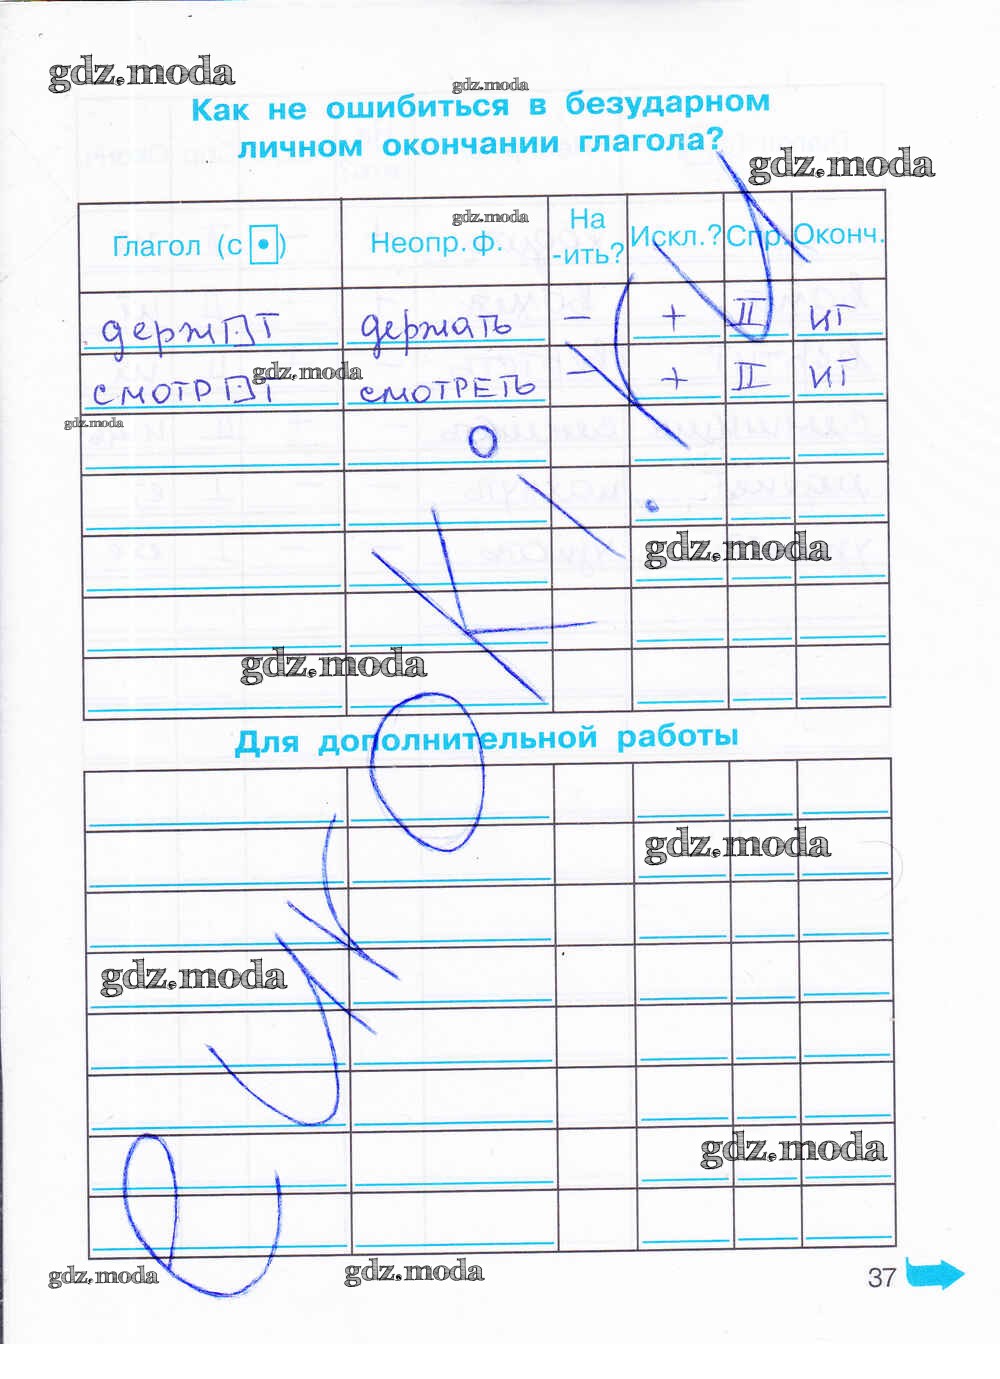 gdz.moda
gdz.moda
Как не ошибиться в безударном
личном окончании глагола?
gdz.moda
Глагол (с •) Неопр. ф. На -ить? Искл.? Спр. Оконч.
gdz.moda
держ□т держать – + II ит
смотр□т смотреть – + II ит
gdz.moda
gdz.moda
gdz.moda
gdz.moda
Для дополнительной работы
gdz.moda
gdz.moda
gdz.moda
gdz.moda
gdz.moda
37